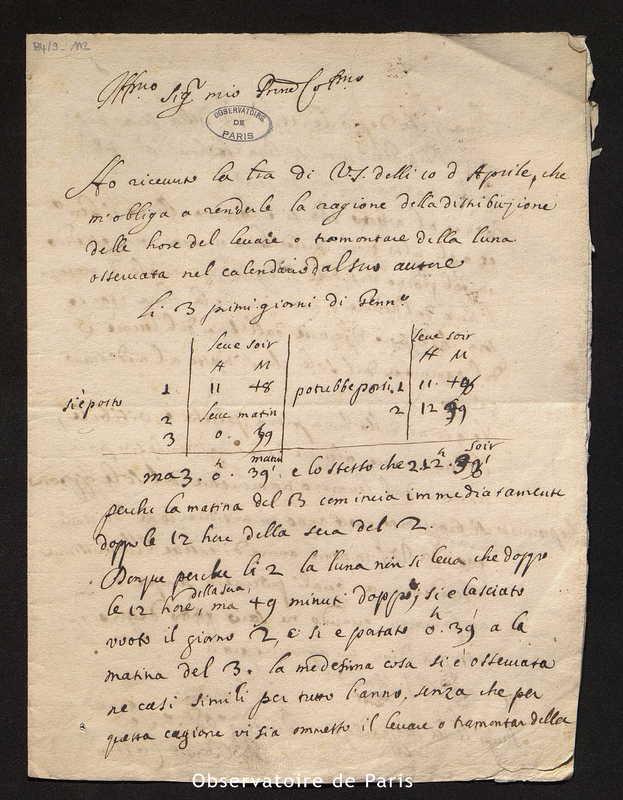 B4/9-112
Ill.mo Sig.r mio Prone Col.mo
OBSERVATOIRE
DE
PARIS
Ho ricevuto la tra di V.S. delli 10 d Aprile, che
m'obliga a renderle la ragione della distribuzione
delle hore del levare o tramontare della luna
osservata nel calendario dal suo autore
Li 3 primi giorni di Genn.o
leve soir leve soir
H M H M
si è posto 1 11 48 potrebbe porsi 1 11. 48
2 leve matin 2 12 39
3 0. 39
ma 3. 0h. 39' matin e lo stesso che 2 12h. 39' soir
perche la matina del 3 comincia immediatamente
doppo le 12 hore della sera del 2.
Donque perche li 2 la luna non si leva che doppo
le 12 hore della sera, ma 49 minuti doppo, si e lasciato
vuoto il giorno 2, e si e portato 0h. 39' a la
matina del 3. la medesima cosa si è osservata
ne casi simili per tutto l'anno, senza che per
questa cagione vi sia ommesso il levare o tramontar della
Observatoire de Paris